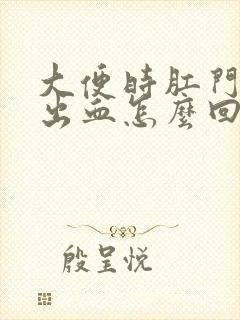 大便時肛門
出血怎麼回
殷呈悦